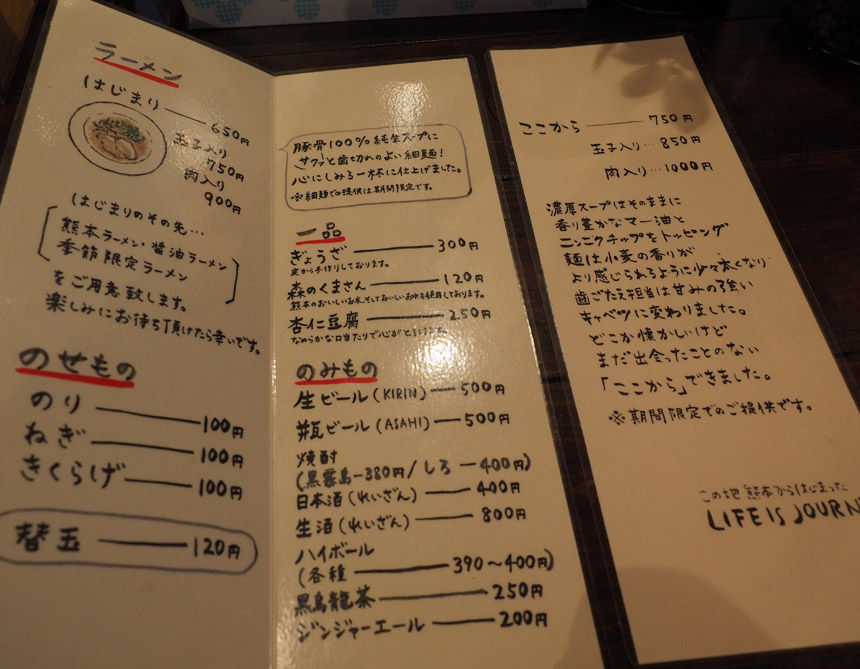 ラーメン
はじまり 650円
玉子入り 750円
肉入り 900円
はじまりのその先…
熊本ラーメン・醤油ラーメン
季節限定ラーメン
をご用意致します。
楽しみにお待ち頂けたら幸いです。
のせもの
のり 100円
ねぎ 100円
きくらげ 100円
替玉 120円
豚骨100%純生スープに
サクッと歯切れのよい細麺!
心にしみる一杯に仕上げました。
※細麺でのご提供は期間限定です。
一品
ぎょうざ 300円
皮から手作りしております。
森のくまさん 120円
熊本のおいしいお米、そしておいしいお水を使用しております。
杏仁豆腐 250円
なめらかな口当たりで心がとろけます。
のみもの
生ビール(KIRIN) 500円
瓶ビール(ASAHI) 500円
焼酎
(黒霧島-380円/しろ-400円)
日本酒(れいざん) 400円
生酒(れいざん) 800円
ハイボール
(各種 390〜400円)
黒烏龍茶 250円
ジンジャーエール 200円
ここから 750円
玉子入り…850円
肉入り…1000円
濃厚スープはそのままに
香り豊かなマー油と
ニンニクチップをトッピング
麺は小麦の香りが
より感じられるように少々太くなり
歯ごたえ担当は甘みの強い
キャベツに変わりました。
どこか懐かしいけど
まだ出会ったことのない
「ここから」できました。
※期間限定でのご提供です。
この地 熊本からはじまった
LIFE IS JOURN